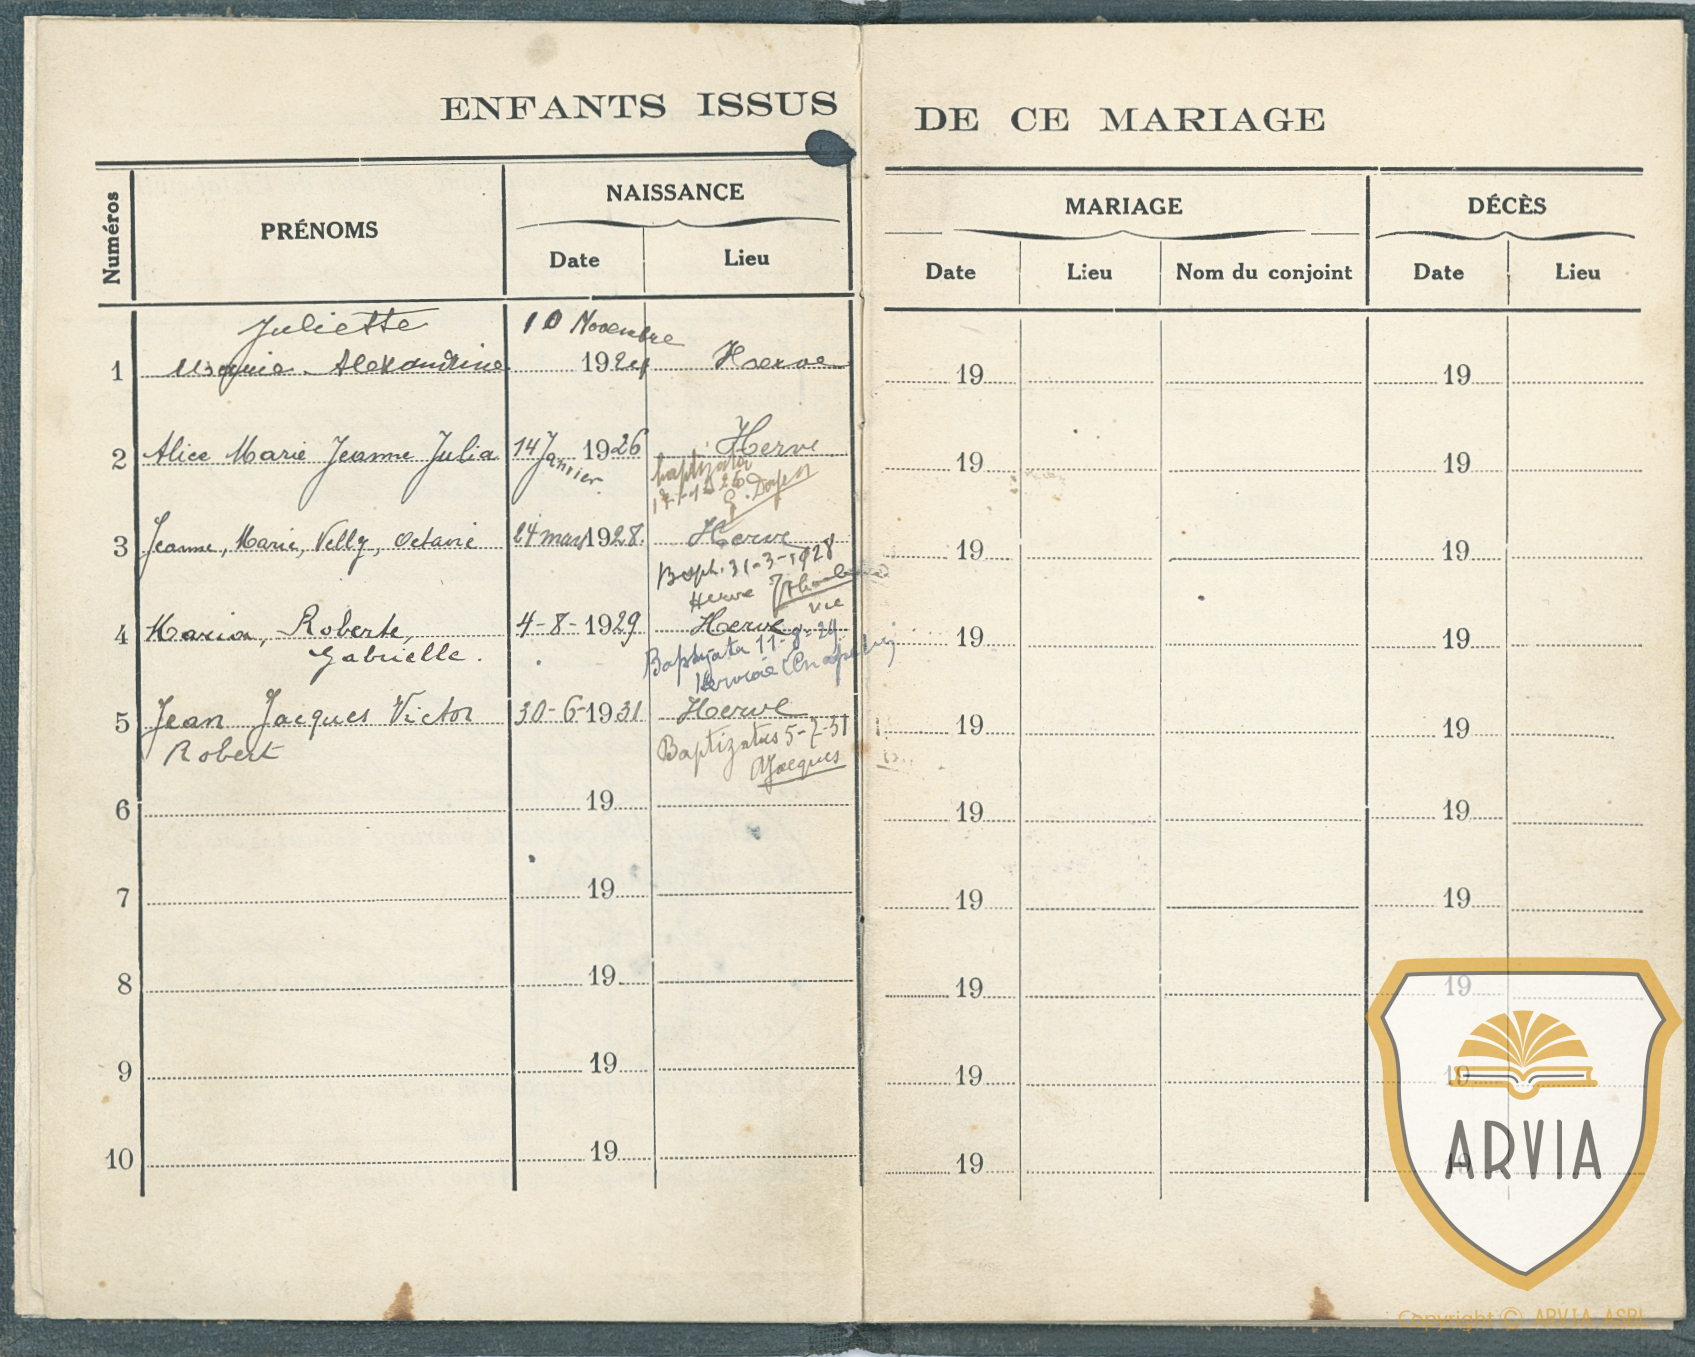 ENFANTS ISSUS DE CE MARIAGE
Numéros PRÉNOMS NAISSANCE MARIAGE DÉCÈS
Date Lieu Date Lieu Nom du conjoint Date Lieu
Juliette 10 Novembre
1 Alexandrine 1924 Herve 19 19
2 Alice Marie Jeanne Julia 14 Janvier 1926 Herve 19 19
baptizata
G. Doyen
3 Jeanne, Marie, Nelly, Octavie 24 mars 1928. Herve 19 19
Bapt. 31-3-1928
Herve
vic
4 Maria, Roberte, 4-8-1929 Herve 19 19
Gabrielle.
Baptizata 11-8-29
5 Jean Jacques Victor 30-6-1931 Herve 19 19
Robert
Baptizatus 5-7-31
Jacques
6 19 19 19
7 19 19 19
8 19 19 19
9 19 19 19
10 19 19 19
ARVIA
Copyright © ARVIA ASBL